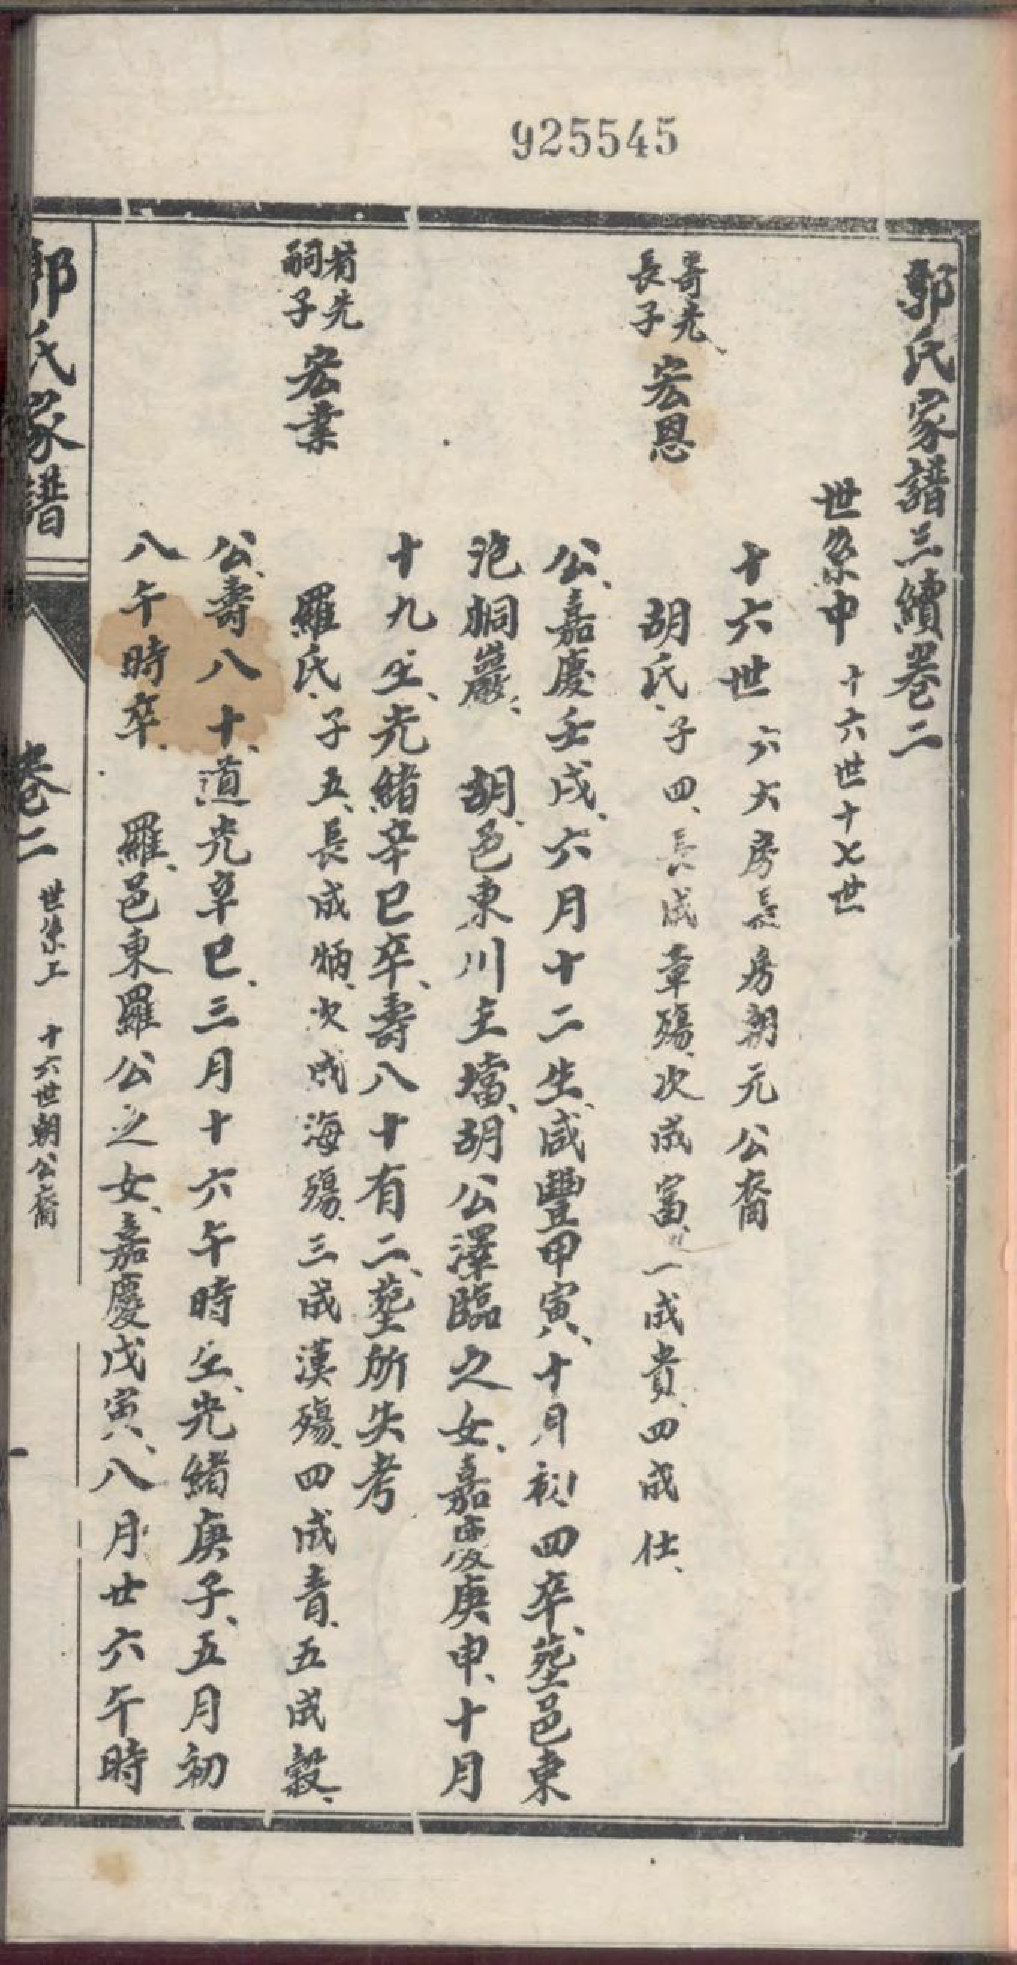 925545
郭氏家譜三續卷二
世系中 十六世十七世
十六世 六大房長房朝元公裔
奇先長子 宏恩 胡氏、子四、長成章殤、次成富、一成貴、四成仕、
公、嘉慶壬戌、六月十二生、咸豐甲寅、十月初四卒、塟邑東
泡峒巖、 胡、邑東川主壋、胡公澤臨之女、嘉慶庚申、十月
十九生、光緒辛巳卒、壽八十有二、塟所失考
先嗣子 宏業 羅氏、子五、長成炳、次成海殤、三成漢殤、四成音、五成穀、
公、壽八十、道光辛巳、三月十六午時生、光緒庚子、五月初
八午時卒、 羅、邑東羅公之女、嘉慶戊寅、八月廿六午時
郭氏家譜 卷二 世系 十六世朝公裔